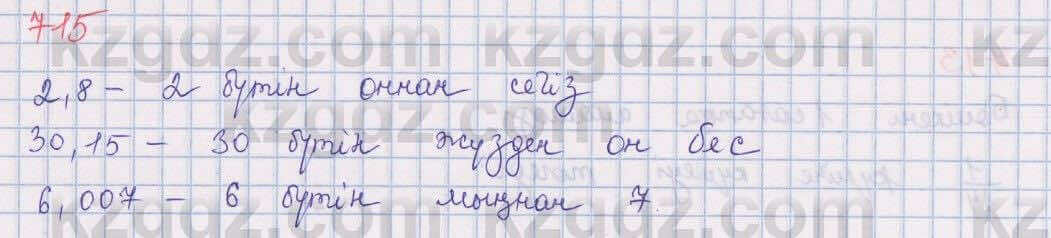 715
kzgdz.com kzgdz.com
2,8 – 2 бүтін оннан сегіз
30,15 – 30 бүтін жүзден он бес
6,007 – 6 бүтін мыңнан 7.